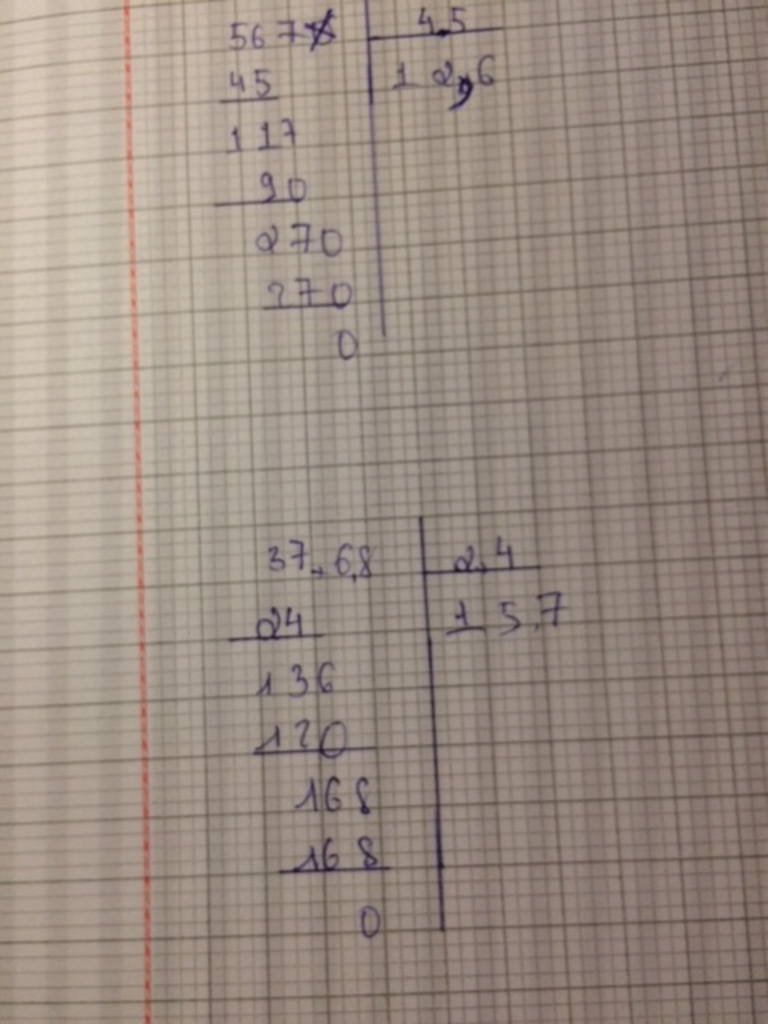 567 4,5
45 1 2,6
117
90
270
270
0
37,6,8 2,4
24 1 5,7
136
120
168
168
0